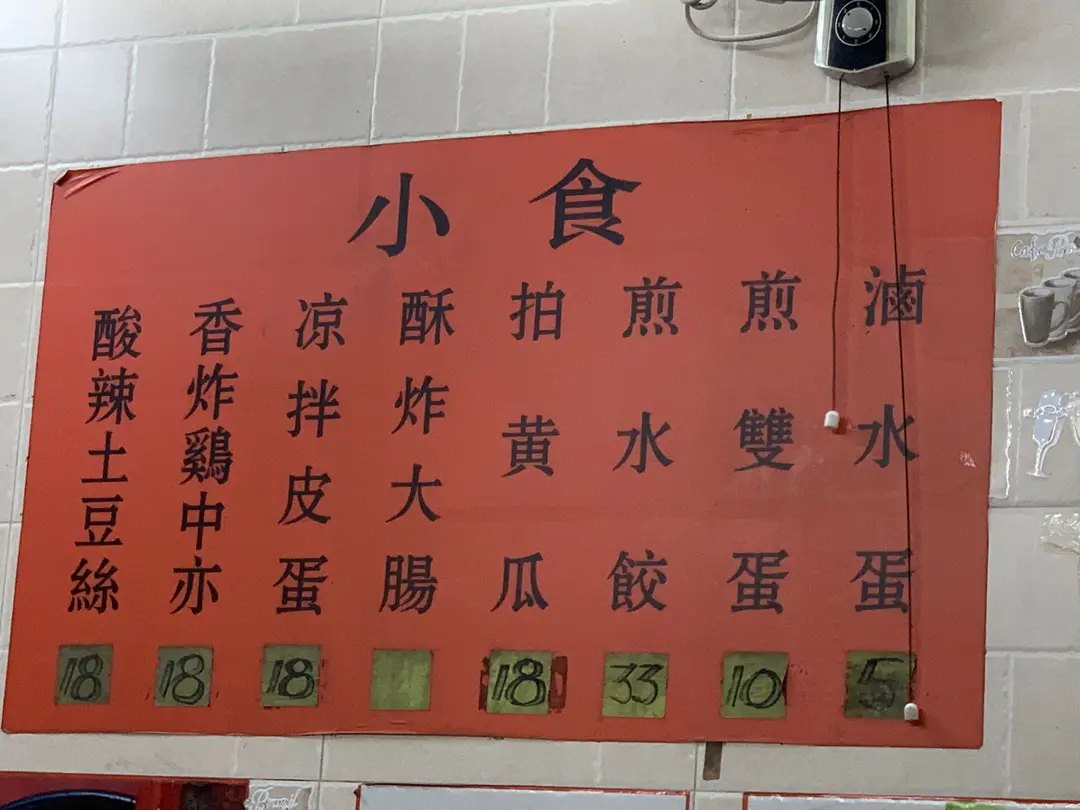 小食
滷水蛋
5
煎雙蛋
10
煎水餃
33
拍黄瓜
18
酥炸大腸
凉拌皮蛋
18
香炸鷄中亦
18
酸辣土豆絲
18